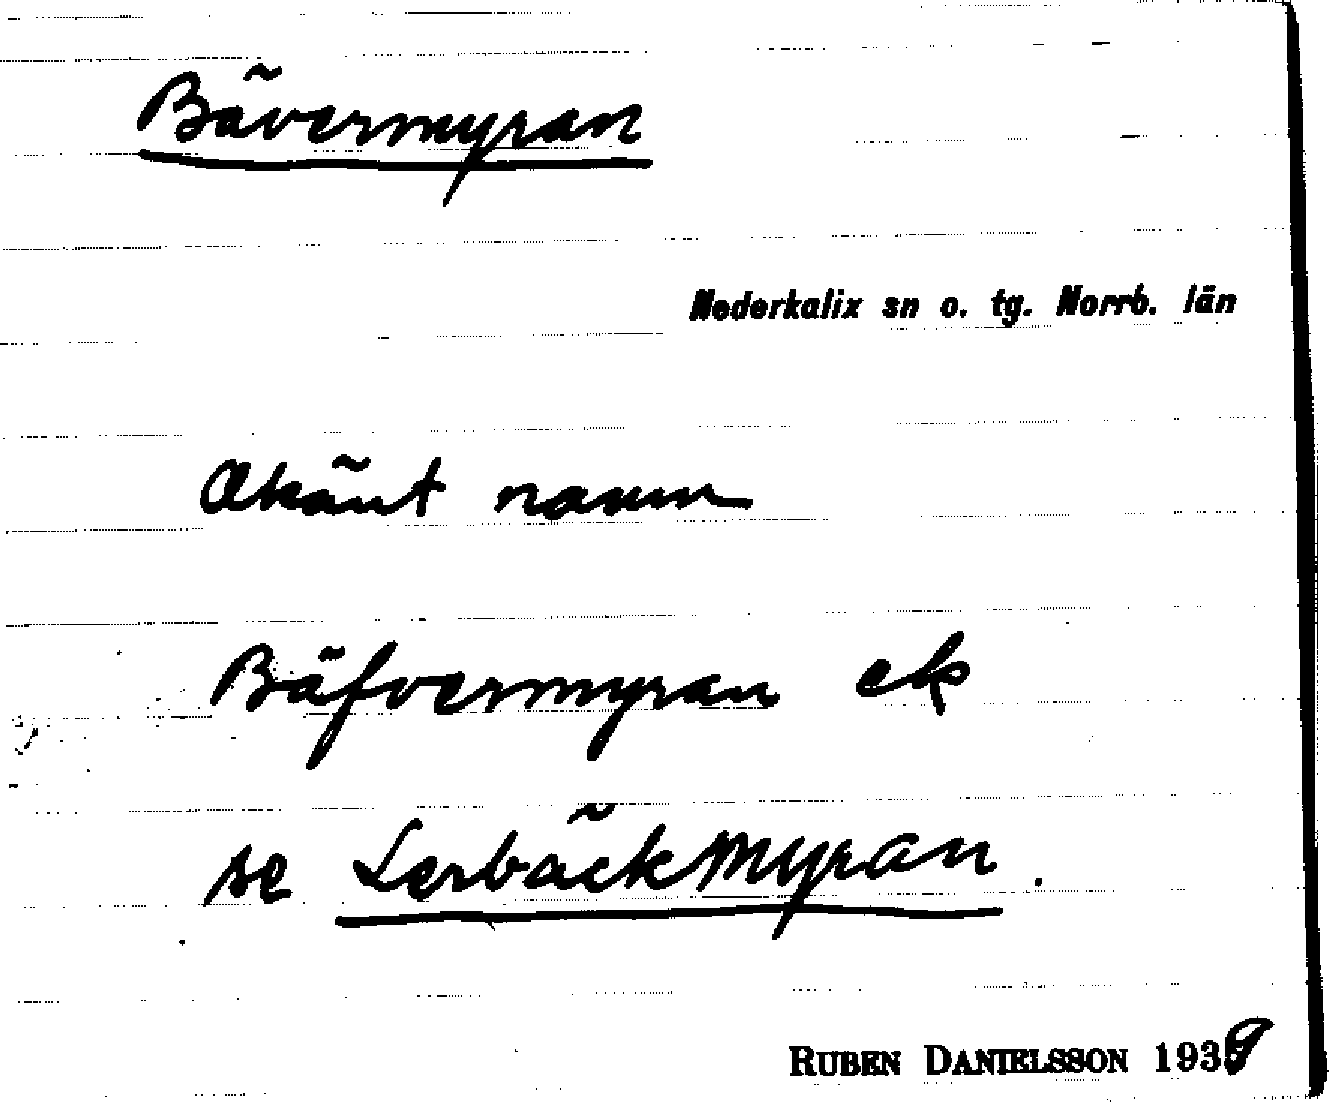 Bävermyran
Nederkalix sn o. tg. Norrb. län
Okänt namn
Bäfvermyran ek
se Lerbäckmyran.
RUBEN DANIELSSON 1939